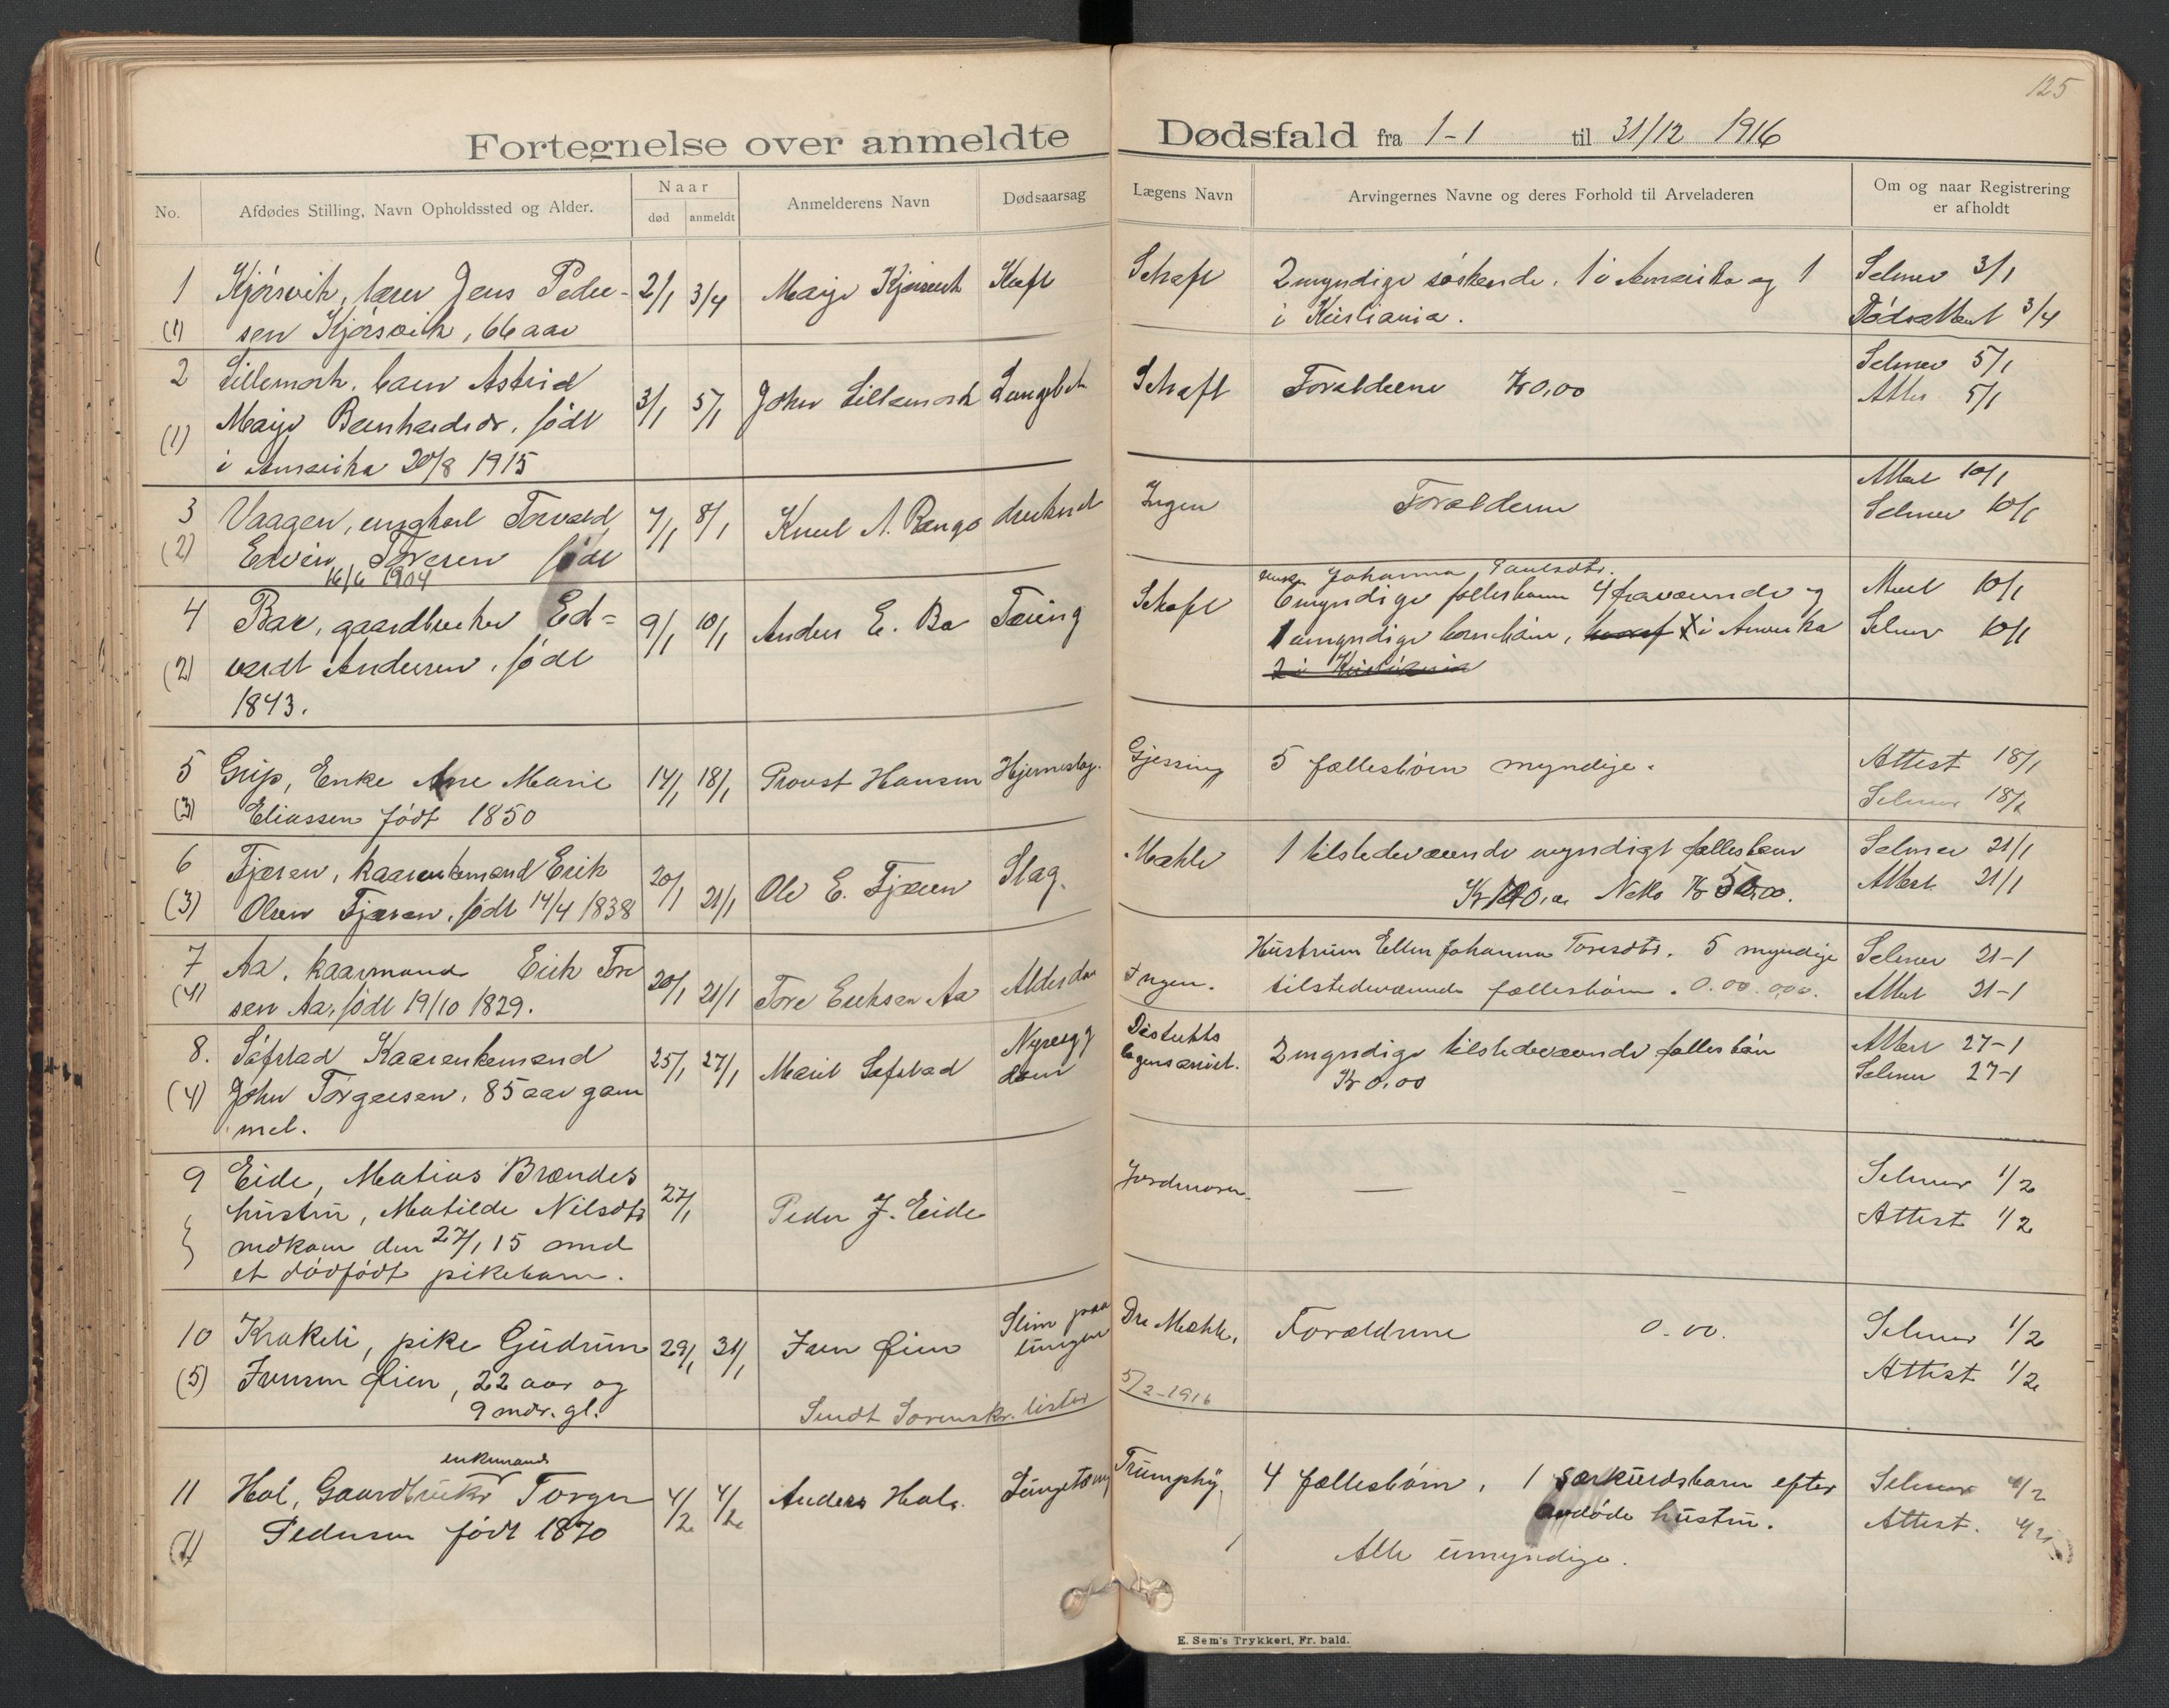 125
Fortegnelse over anmeldte Dødsfald fra 1-1 til 31/12 1916
No.
Afdødes Stilling, Navn Opholdssted og Alder.
Naar
død
anmeldt
Anmelderens Navn
Dødsaarsag
Lægens Navn
Arvingernes Navne og deres Forhold til Arveladeren
Om og naar Registrering
er afholdt
1 Kjørsvik, lærer Jens Peder- 2/1 3/4 Marie Kjørsvik Kræft Schaft 2 myndige søskende. 1 i Amerika og 1 Selmer 3/1
(1) sen Kjørsvik, 66 aar i Kristiania. Dødsattest 3/4
2 Lillemork, barn Astrid 3/1 5/1 John Lillemork Lungebet Schaft Forældrene Kr 0,00 Selmer 5/1
(1) Marie Bernhardsdr. født Attes 5/1
i Amerika 20/8 1915
3 Vaagen, ungkarl Torvald 7/1 8/1 Knut A. Rangø druknet Ingen Forældrene Attest 10/1
(2) Edvin Toresen født Selmer 10/1
16/6 1904
enke Johanna Paulsdtr.
4 Bae, gaardbruker Ed- 9/1 10/1 Anders E. Ba Tæring Schaft 6 myndige fællesbørn 4 fraværende og Attest 10/1
(2) vardt Andersen, født 1 umyndige barnebarn, i Amerika Selmer 10/1
1843. 2 i Kristiania
5 Grip, Enke Ane Marie 14/1 18/1 Provst Hansen Hjerneslag. Gjessing 5 fællesbørn myndige. Attest 18/1
(3) Eliassen født 1850 Selmer 18/1
6 Fjæren, kaarenkemand Erik 20/1 21/1 Ole E. Fjæren Slag. Mæhle 1 tilstedeværende myndigt fællesbarn Selmer 21/1
(3) Olsen Fjæren, født 14/4 1838 Netto Kr Attest 21/1
7 Aa, kaarmand Erik Tore 20/1 21/1 Tore Eriksen Aa Alderdom Ingen. Hustruen Ellen Johanna Toresdtr. 5 myndige Selmer 21-1
(4) sen Aa, født 19/10 1829. tilstedeværende fællesbørn. 0.00 0,00. Attest 21-1
8. Søfstad Kaarenkemand 25/1 27/1 Marit Søfstad Nyresyg Distrikts 2 myndige tilstedeværende fællesbørn Attest 27-1
(4) John Torgersen, 85 aar gam dom lægensassist. Kr 0,00 Selmer 27-1
mel.
9 Eide, Matias Brændes 27/1 Peder J. Eide Jordmoren — — Selmer 1/2
hustru, Matilde Nilsdtr Attest 1/2
nedkom den 27/1 15 med
et dødfødt pikebarn.
10 Krakeli, pike Gudrun 29/1 31/1 Iven Øien Slim paa lungen Dr. Mæhle, Forældrene 0.00. Selmer 1/2
(5) Ivensen Øien, 22 aar og Attest 1/2
9 mdr. gl. Sendt Sorenskr. lister 5/2-1916
enkemand
11 Hol, Gaardbruker Torger 4/2 4/2 Anders Hals. Lungetæring Trumphy. 4 fællesbørn, 1 særkuldsbarn efter Selmer 4/2
(1) Pedersen født 1870 avdøde hustru. Attest. 4/2
Alle umyndige.
E. Sem's Trykkeri, Fr.hald.